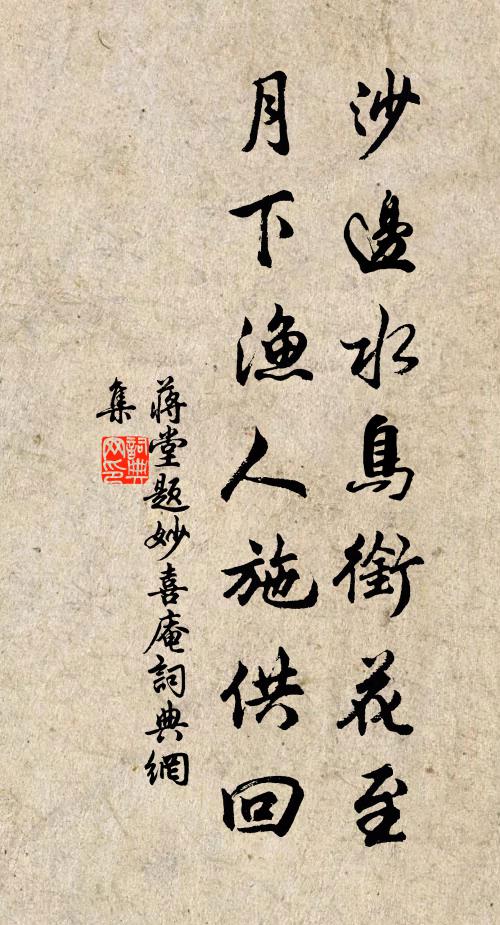 沙邊水鳥銜花至
月下漁人施供回
蔣堂題妙喜庵詞典網
集
詞典
网印